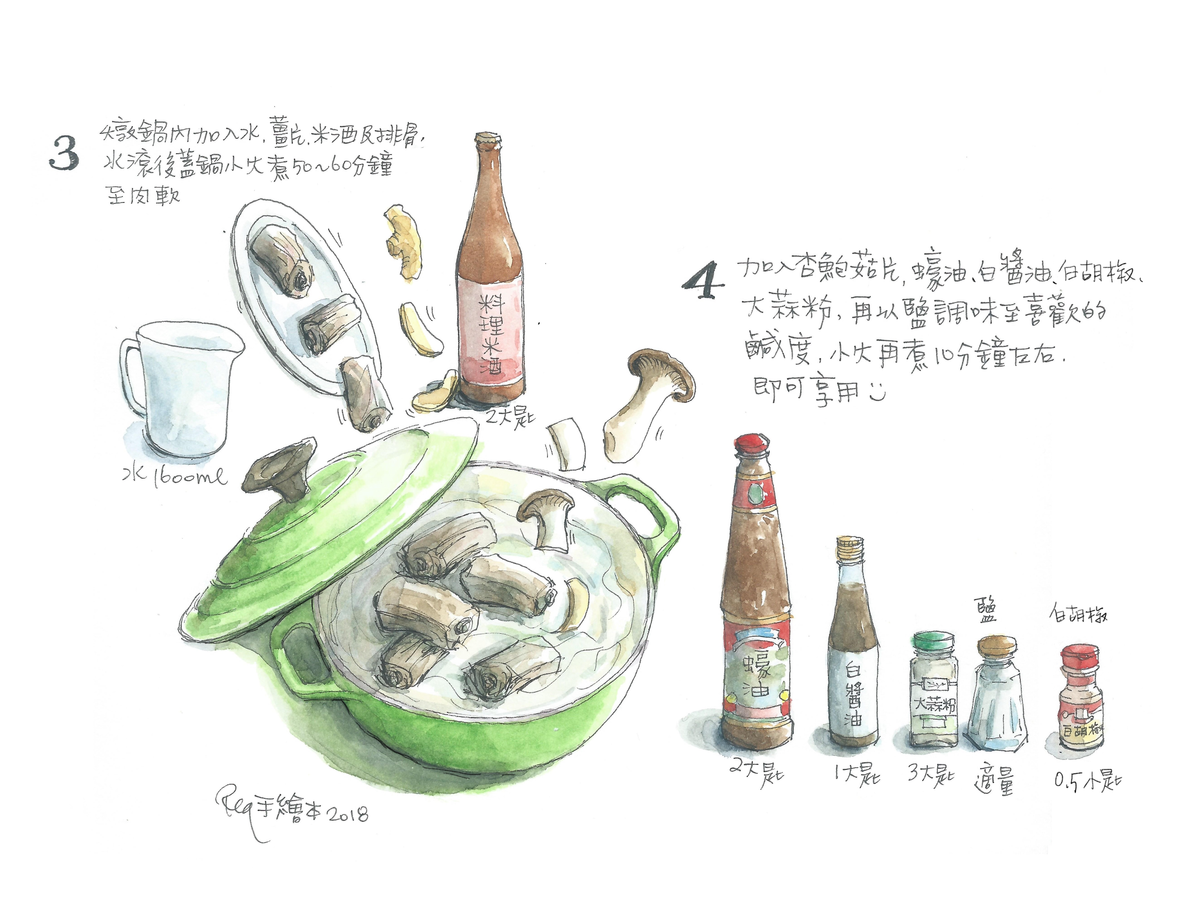 3
燉鍋內加入水,薑片,米酒及排骨,
水滾後蓋鍋小火煮50~60分鐘
至肉軟
料理米酒
2大匙
水 1600ml
4
加入杏鮑菇片,蠔油、白醬油、白胡椒、
大蒜粉,再以鹽調味至喜歡的
鹹度,小火再煮10分鐘左右.
即可享用
蠔油
2大匙
白醬油
1大匙
大蒜粉
3大匙
鹽
適量
白胡椒
白胡椒
0.5小匙
Req手繪本2018